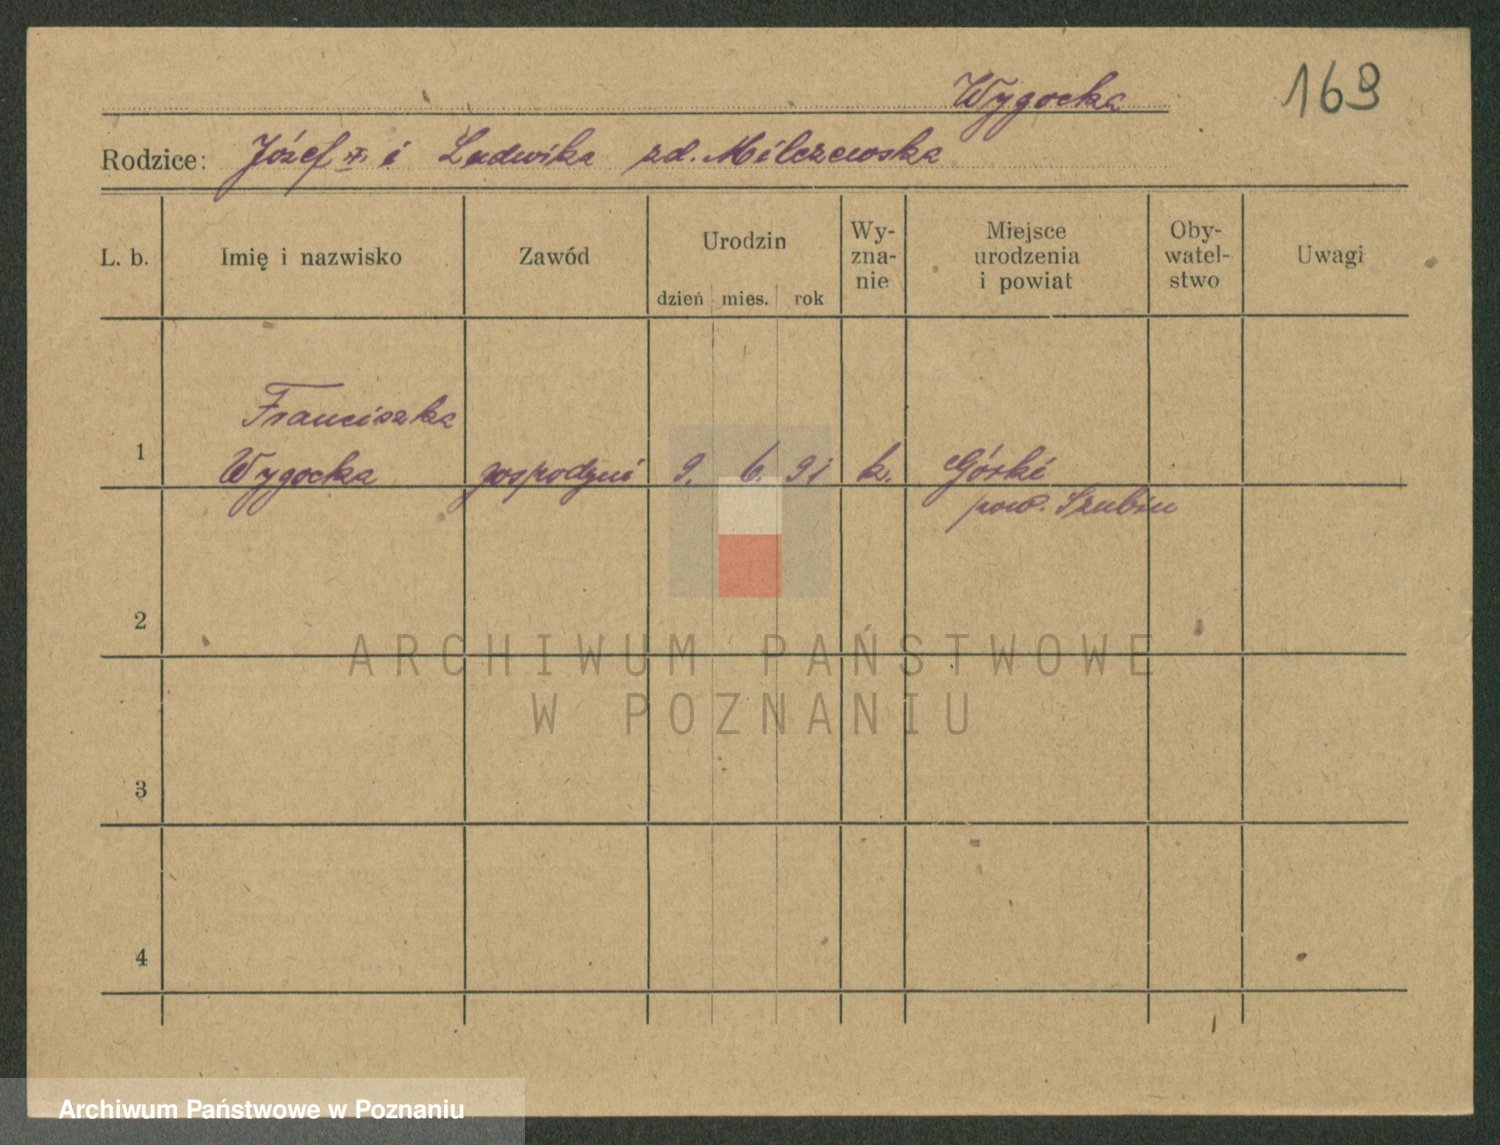 Wygocka
169
Rodzice: Józef i Ludwika zd. Milczewska
L. b.
Imię i nazwisko
Zawód
Urodzin
dzień mies. rok
Wy-
zna-
nie
Miejsce
urodzenia
i powiat
Oby-
watel-
stwo
Uwagi
1
Franciszka
Wygocka
gospodyni
9. 6. 91
k.
Górki
pow. Szubin
2
3
4
ARCHIWUM PAŃSTWOWE
W POZNANIU
Archiwum Państwowe w Poznaniu